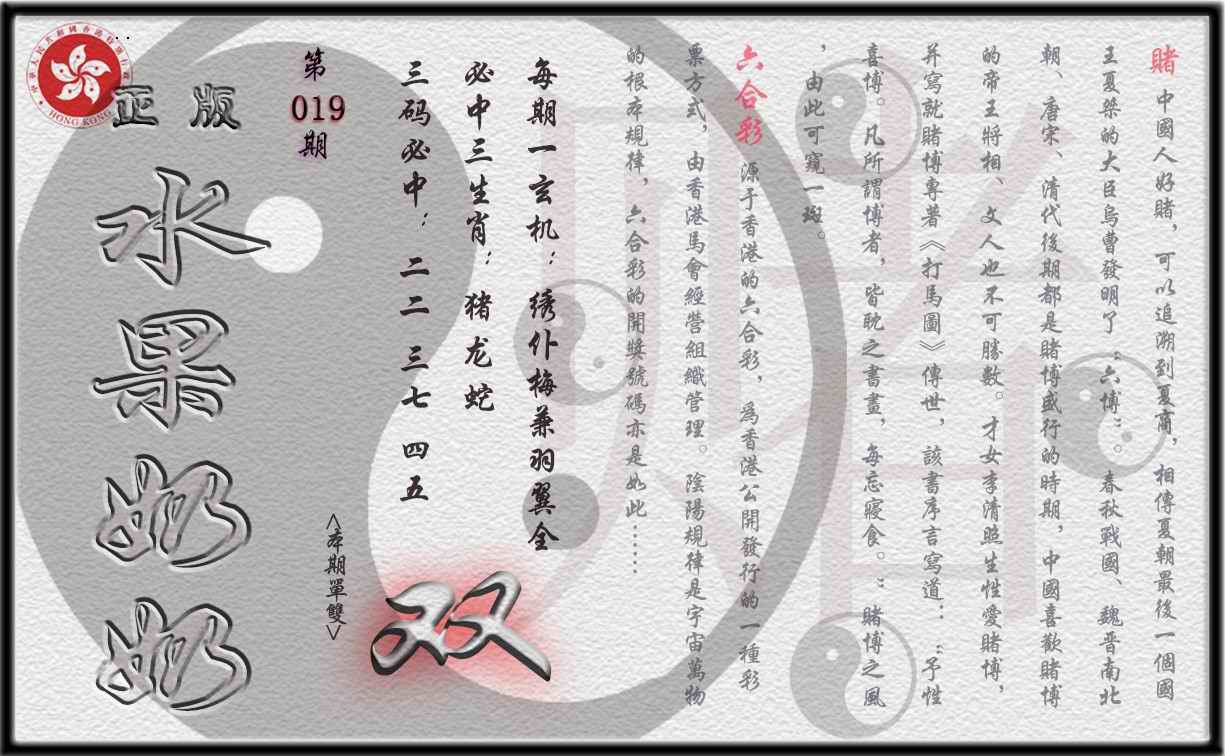 賭 中國人好賭，可以追溯到夏商，相傳夏朝最後一個國
王夏桀的大臣烏曹發明了“六博”。春秋戰國、魏晋南北
朝、唐宋、清代後期都是賭博盛行的時期，中國喜歡賭博
的帝王將相、文人也不可勝數。才女李清照生性愛賭博，
并寫就賭博專著《打馬圖》傳世，該書序言寫道：“予性
喜博。凡所謂博者，皆耽之書畫，每忘寢食。”賭博之風
，由此可窺一斑。
六合彩 源于香港的六合彩，爲香港公開發行的一種彩
票方式，由香港馬會經營組織管理。陰陽規律是宇宙萬物
的根本規律，六合彩的開獎號碼亦是如此……
每期一玄机：绣仆梅兼羽翼全
必中三生肖：猪龙蛇
三码必中：二二 三七 四五
双
<本期單雙>
第
019
期
正版
水果奶奶
中華人民共和國香港特別行政區
HONG KONG
賭